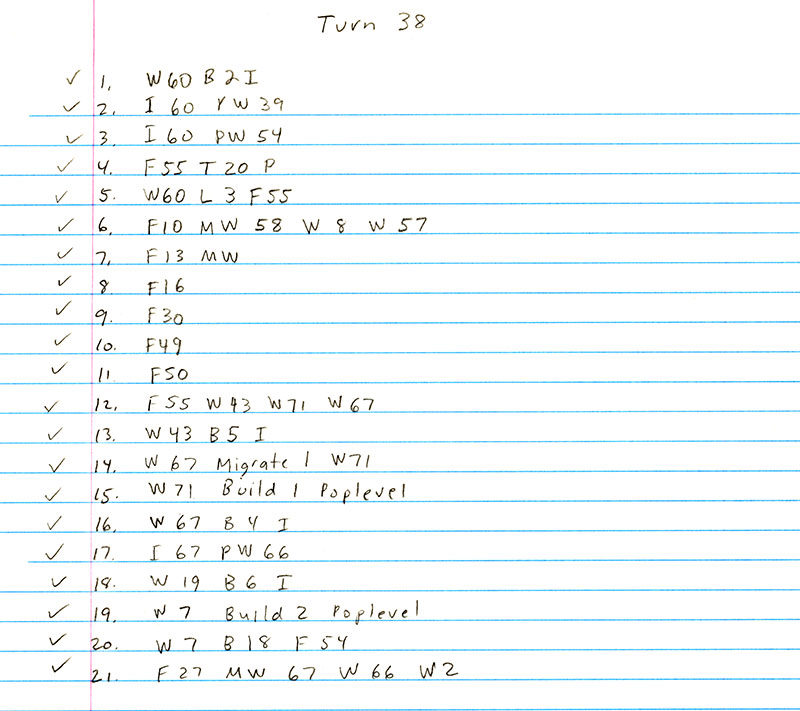 Turn 38
✓ 1. W60 B 2 I
✓ 2. I 60 YW 39
✓ 3. I 60 PW 54
✓ 4. F55 T 20 P
✓ 5. W60 L 3 F55
✓ 6. F10 MW 58 W 8 W 57
✓ 7. F13 MW
✓ 8. F16
✓ 9. F30
✓ 10. F49
✓ 11. F50
✓ 12. F55 W43 W71 W67
✓ 13. W43 B5 I
✓ 14. W 67 Migrate 1 W71
✓ 15. W71 Build 1 Poplevel
✓ 16. W 67 B 4 I
✓ 17. I 67 PW 66
✓ 18. W 19 B 6 I
✓ 19. W 7 Build 2 Poplevel
✓ 20. W 7 B 18 F 54
✓ 21. F 27 MW 67 W 66 W2